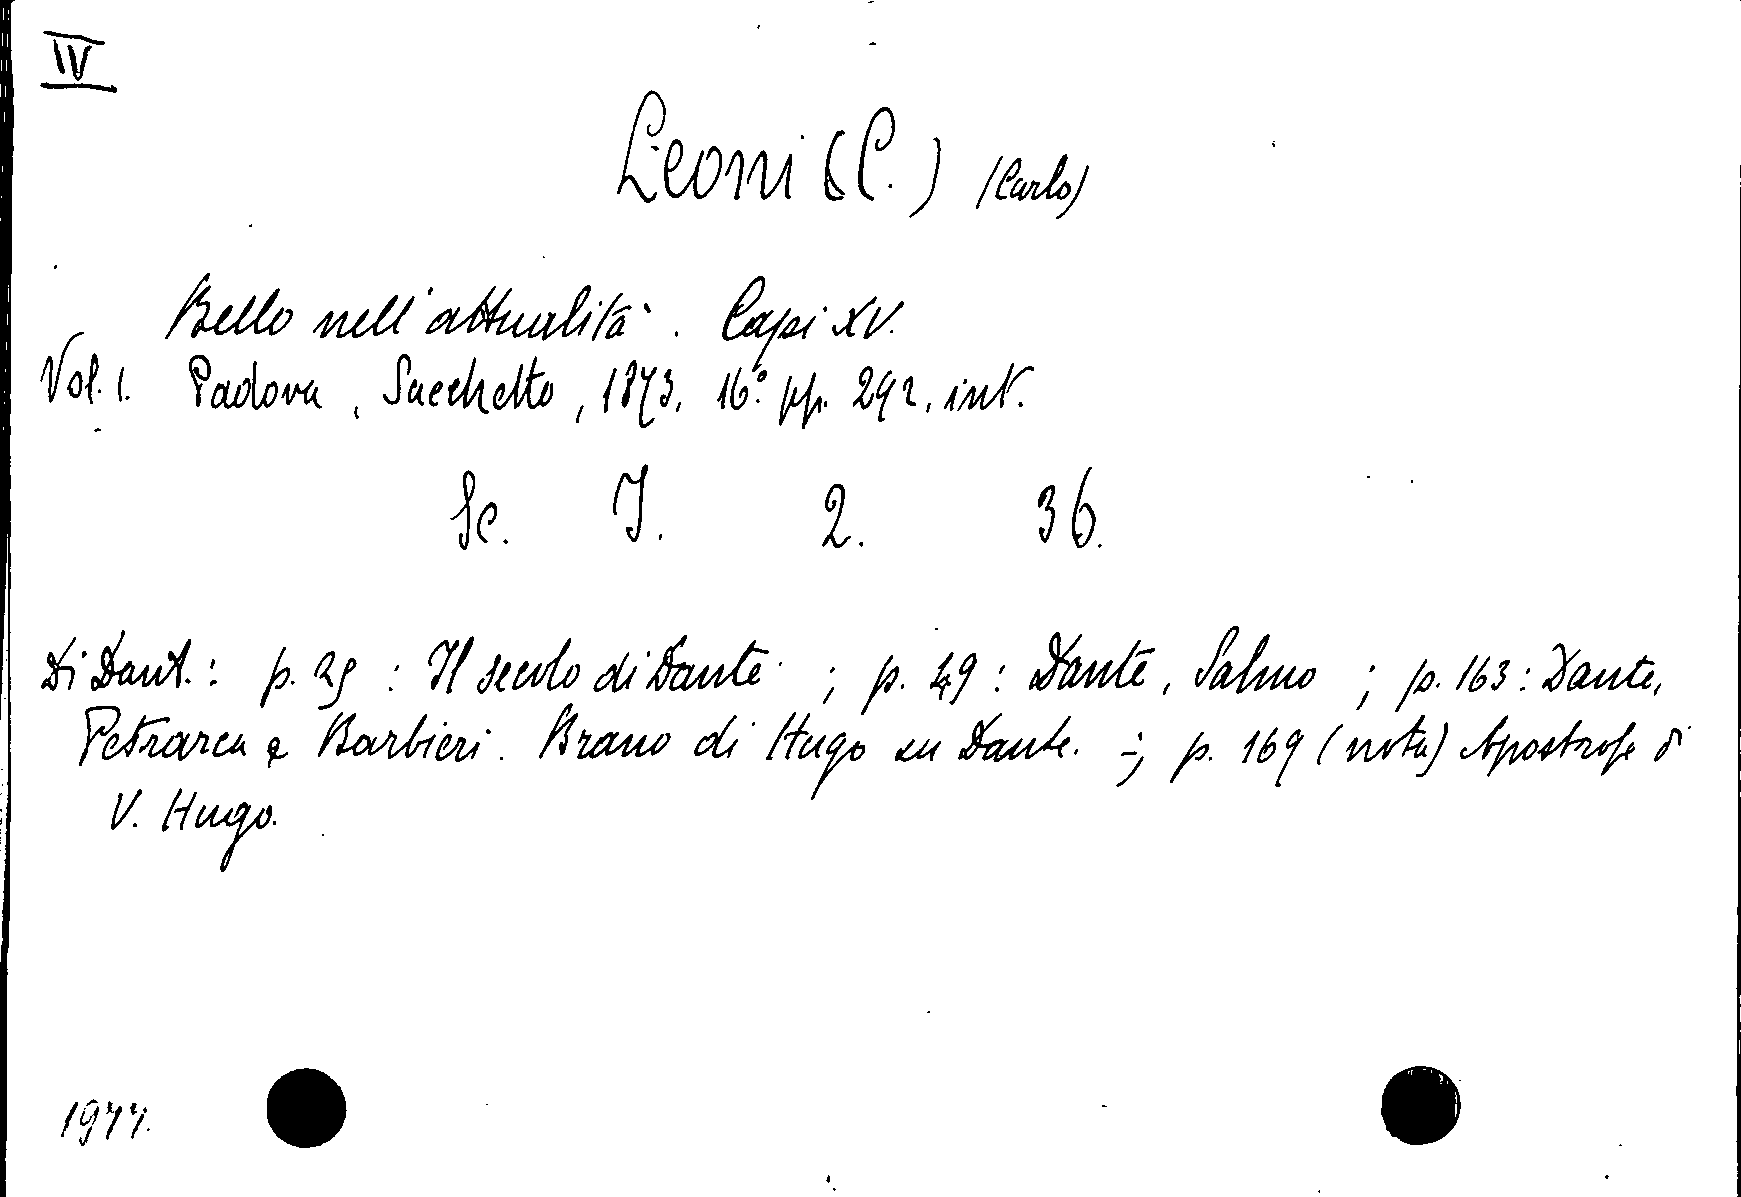 IV
Leoni (C.) (Carlo)
Bello nell'attualità. Capi XV.
Vol. 1. Padova, Sacchetto, 1873. 16° pp. 292. int.
Sc. I. 2. 36.
Di Dant.: p. 25 : Il secolo di Dante ; p. 49 : Dante, Salmo ; p. 163 : Dante,
Petrarca e Barbieri. Brano di Hugo su Dante. -; p. 169 (nota) Apostrofe di
V. Hugo.
1977.